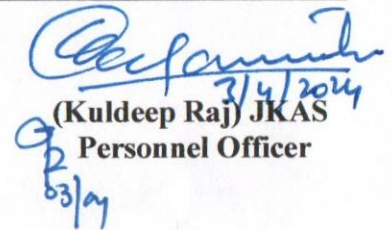 3/4/2024
(Kuldeep Raj) JKAS
Personnel Officer
03/04